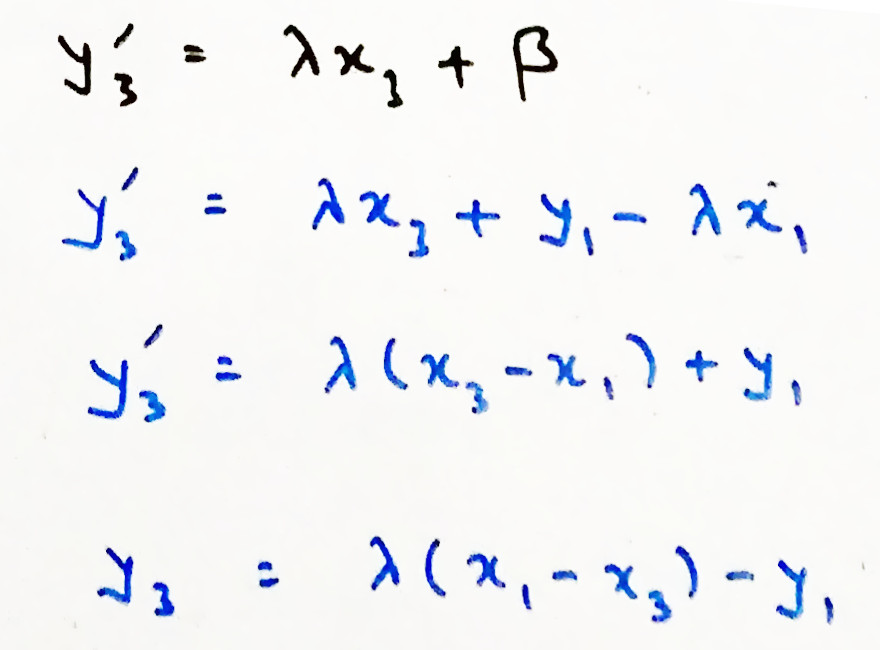 y₃′ = λx₃ + β
y₃′ = λx₃ + y₁ − λx₁
y₃′ = λ(x₃ − x₁) + y₁
y₃ = λ(x₁ − x₃) − y₁